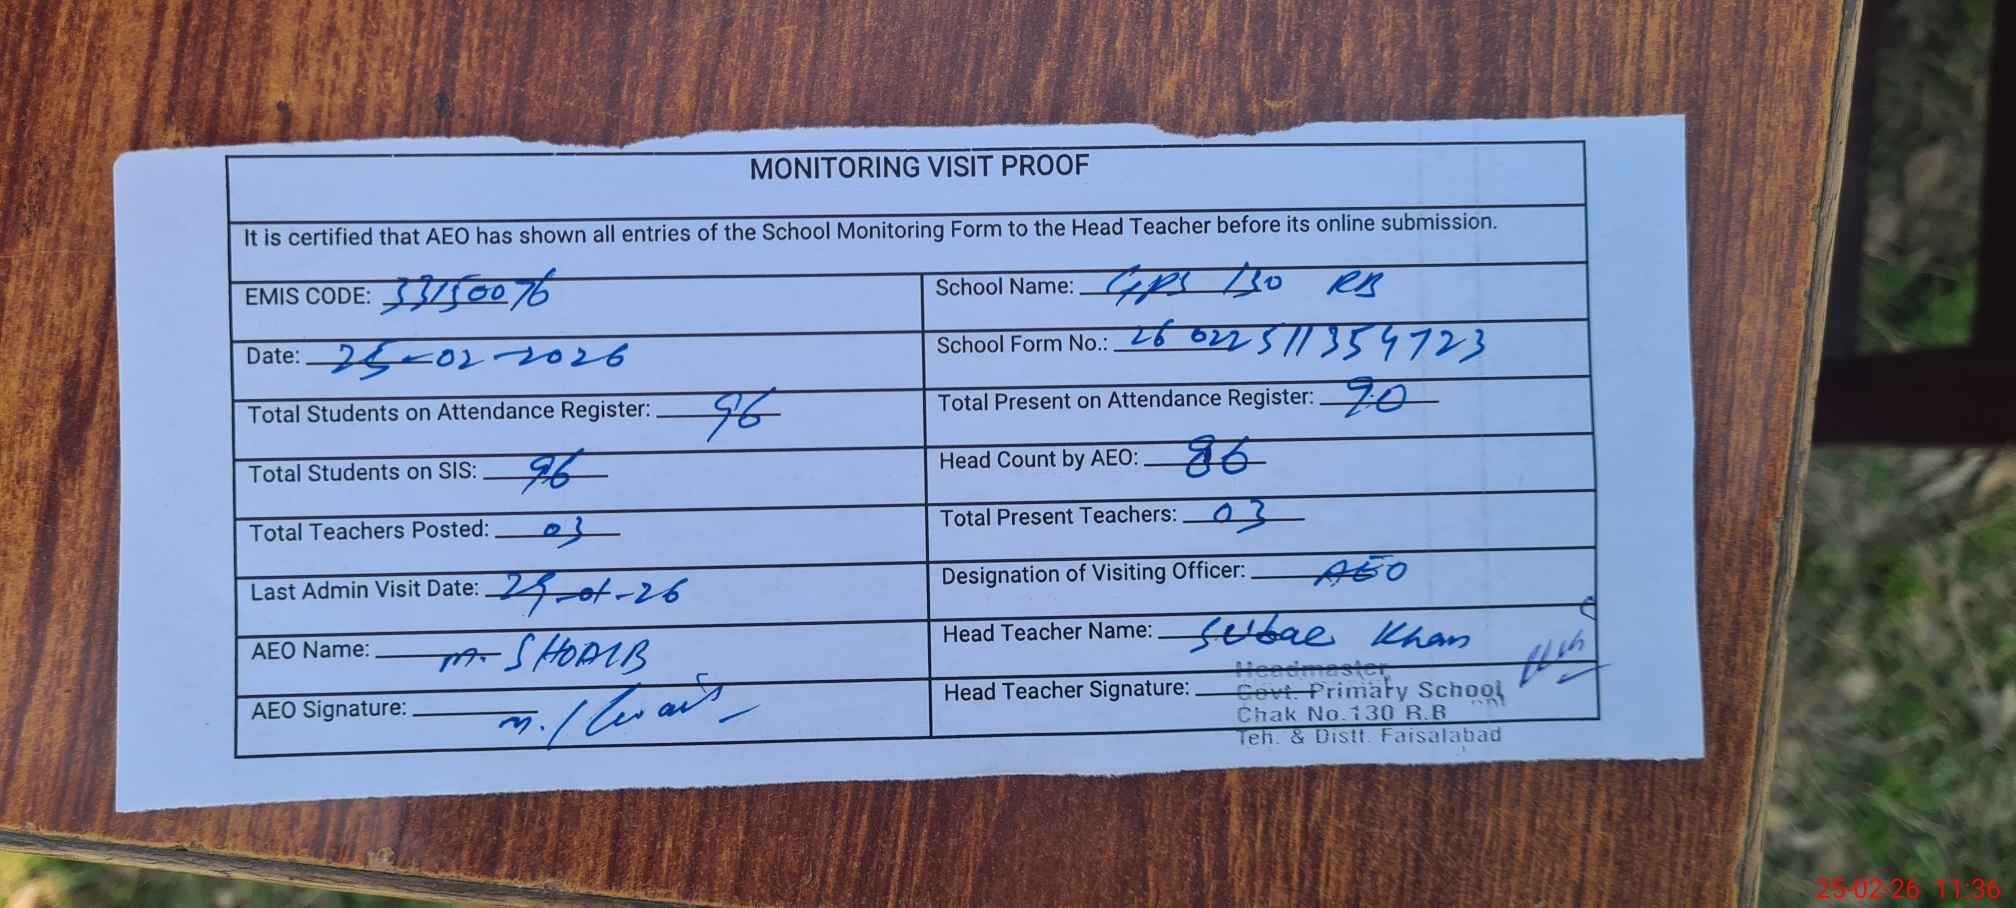 MONITORING VISIT PROOF
It is certified that AEO has shown all entries of the School Monitoring Form to the Head Teacher before its online submission.
EMIS CODE: 33150076
School Name: GPS 130 RB
Date: 25-02-2026
School Form No.: 26 022511354723
Total Students on Attendance Register: 96
Total Present on Attendance Register: 90
Total Students on SIS: 96
Head Count by AEO: 86
Total Teachers Posted: 03
Total Present Teachers: 03
Last Admin Visit Date: 29-01-26
Designation of Visiting Officer: AEO
AEO Name: M. SHOAIB
Head Teacher Name: Khan
AEO Signature:
Head Teacher Signature:
Headmaster
Govt. Primary School
Chak No.130 R.B
Teh. & Distt. Faisalabad
25-02-26 11:36